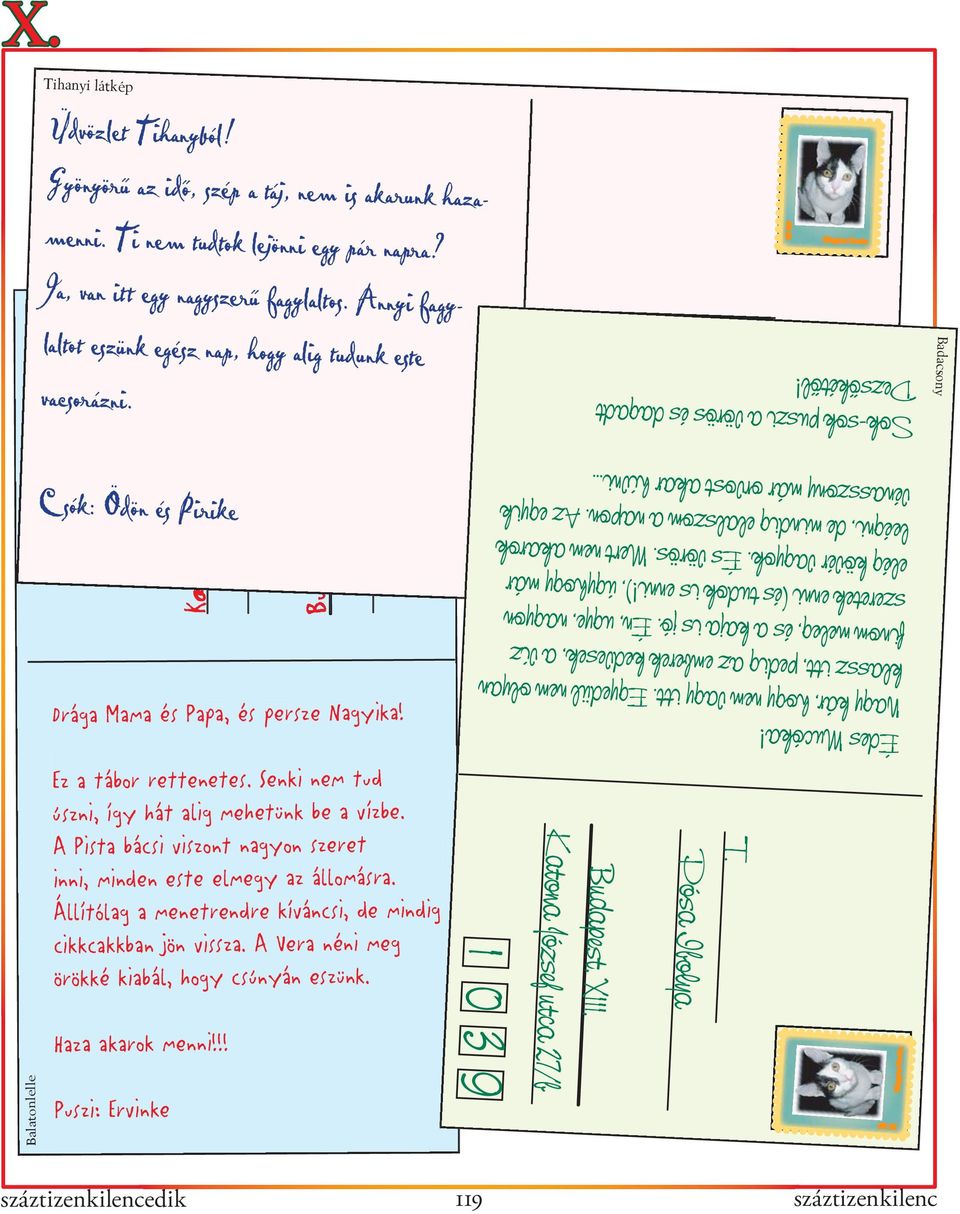 X.
Tihanyi látkép
Üdvözlet Tihanyból!
Gyönyörű az idő, szép a táj, nem is akarunk haza-
menni. Ti nem tudtok lejönni egy pár napra?
Ja, van itt egy nagyszerű fagylaltos. Annyi fagy-
laltot eszünk egész nap, hogy alig tudunk este
vacsorázni.
Csók: Ödön és Pirike
Badacsony
Édes Mucóka!
Nagy kár, hogy nem vagy itt. Egyedül nem olyan
klassz itt, pedig az emberek kedvesek, a víz
finom meleg, és a kaja is jó. Én, ugye, nagyon
szeretek enni (és tudok is enni!), úgyhogy már
elég kövér vagyok. És vörös. Mert nem akarok
leégni, de mindig elalszom a napon. Az egyik
vénasszony már orvost akar hívni...
Sok-sok puszi a vörös és dagadt
Dezsőkétől!
T.
Dósa Ibolya
Budapest, XIII.
Katona József utca 27/b
1 0 3 9
Balatonlelle
Drága Mama és Papa, és persze Nagyika!
Ez a tábor rettenetes. Senki nem tud
úszni, így hát alig mehetünk be a vízbe.
A Pista bácsi viszont nagyon szeret
inni, minden este elmegy az állomásra.
Állítólag a menetrendre kíváncsi, de mindig
cikkcakkban jön vissza. A Vera néni meg
örökké kiabál, hogy csúnyán eszünk.
Haza akarok menni!!!
Puszi: Ervinke
Ko
Bu
száztizenkilencedik
119
száztizenkilenc